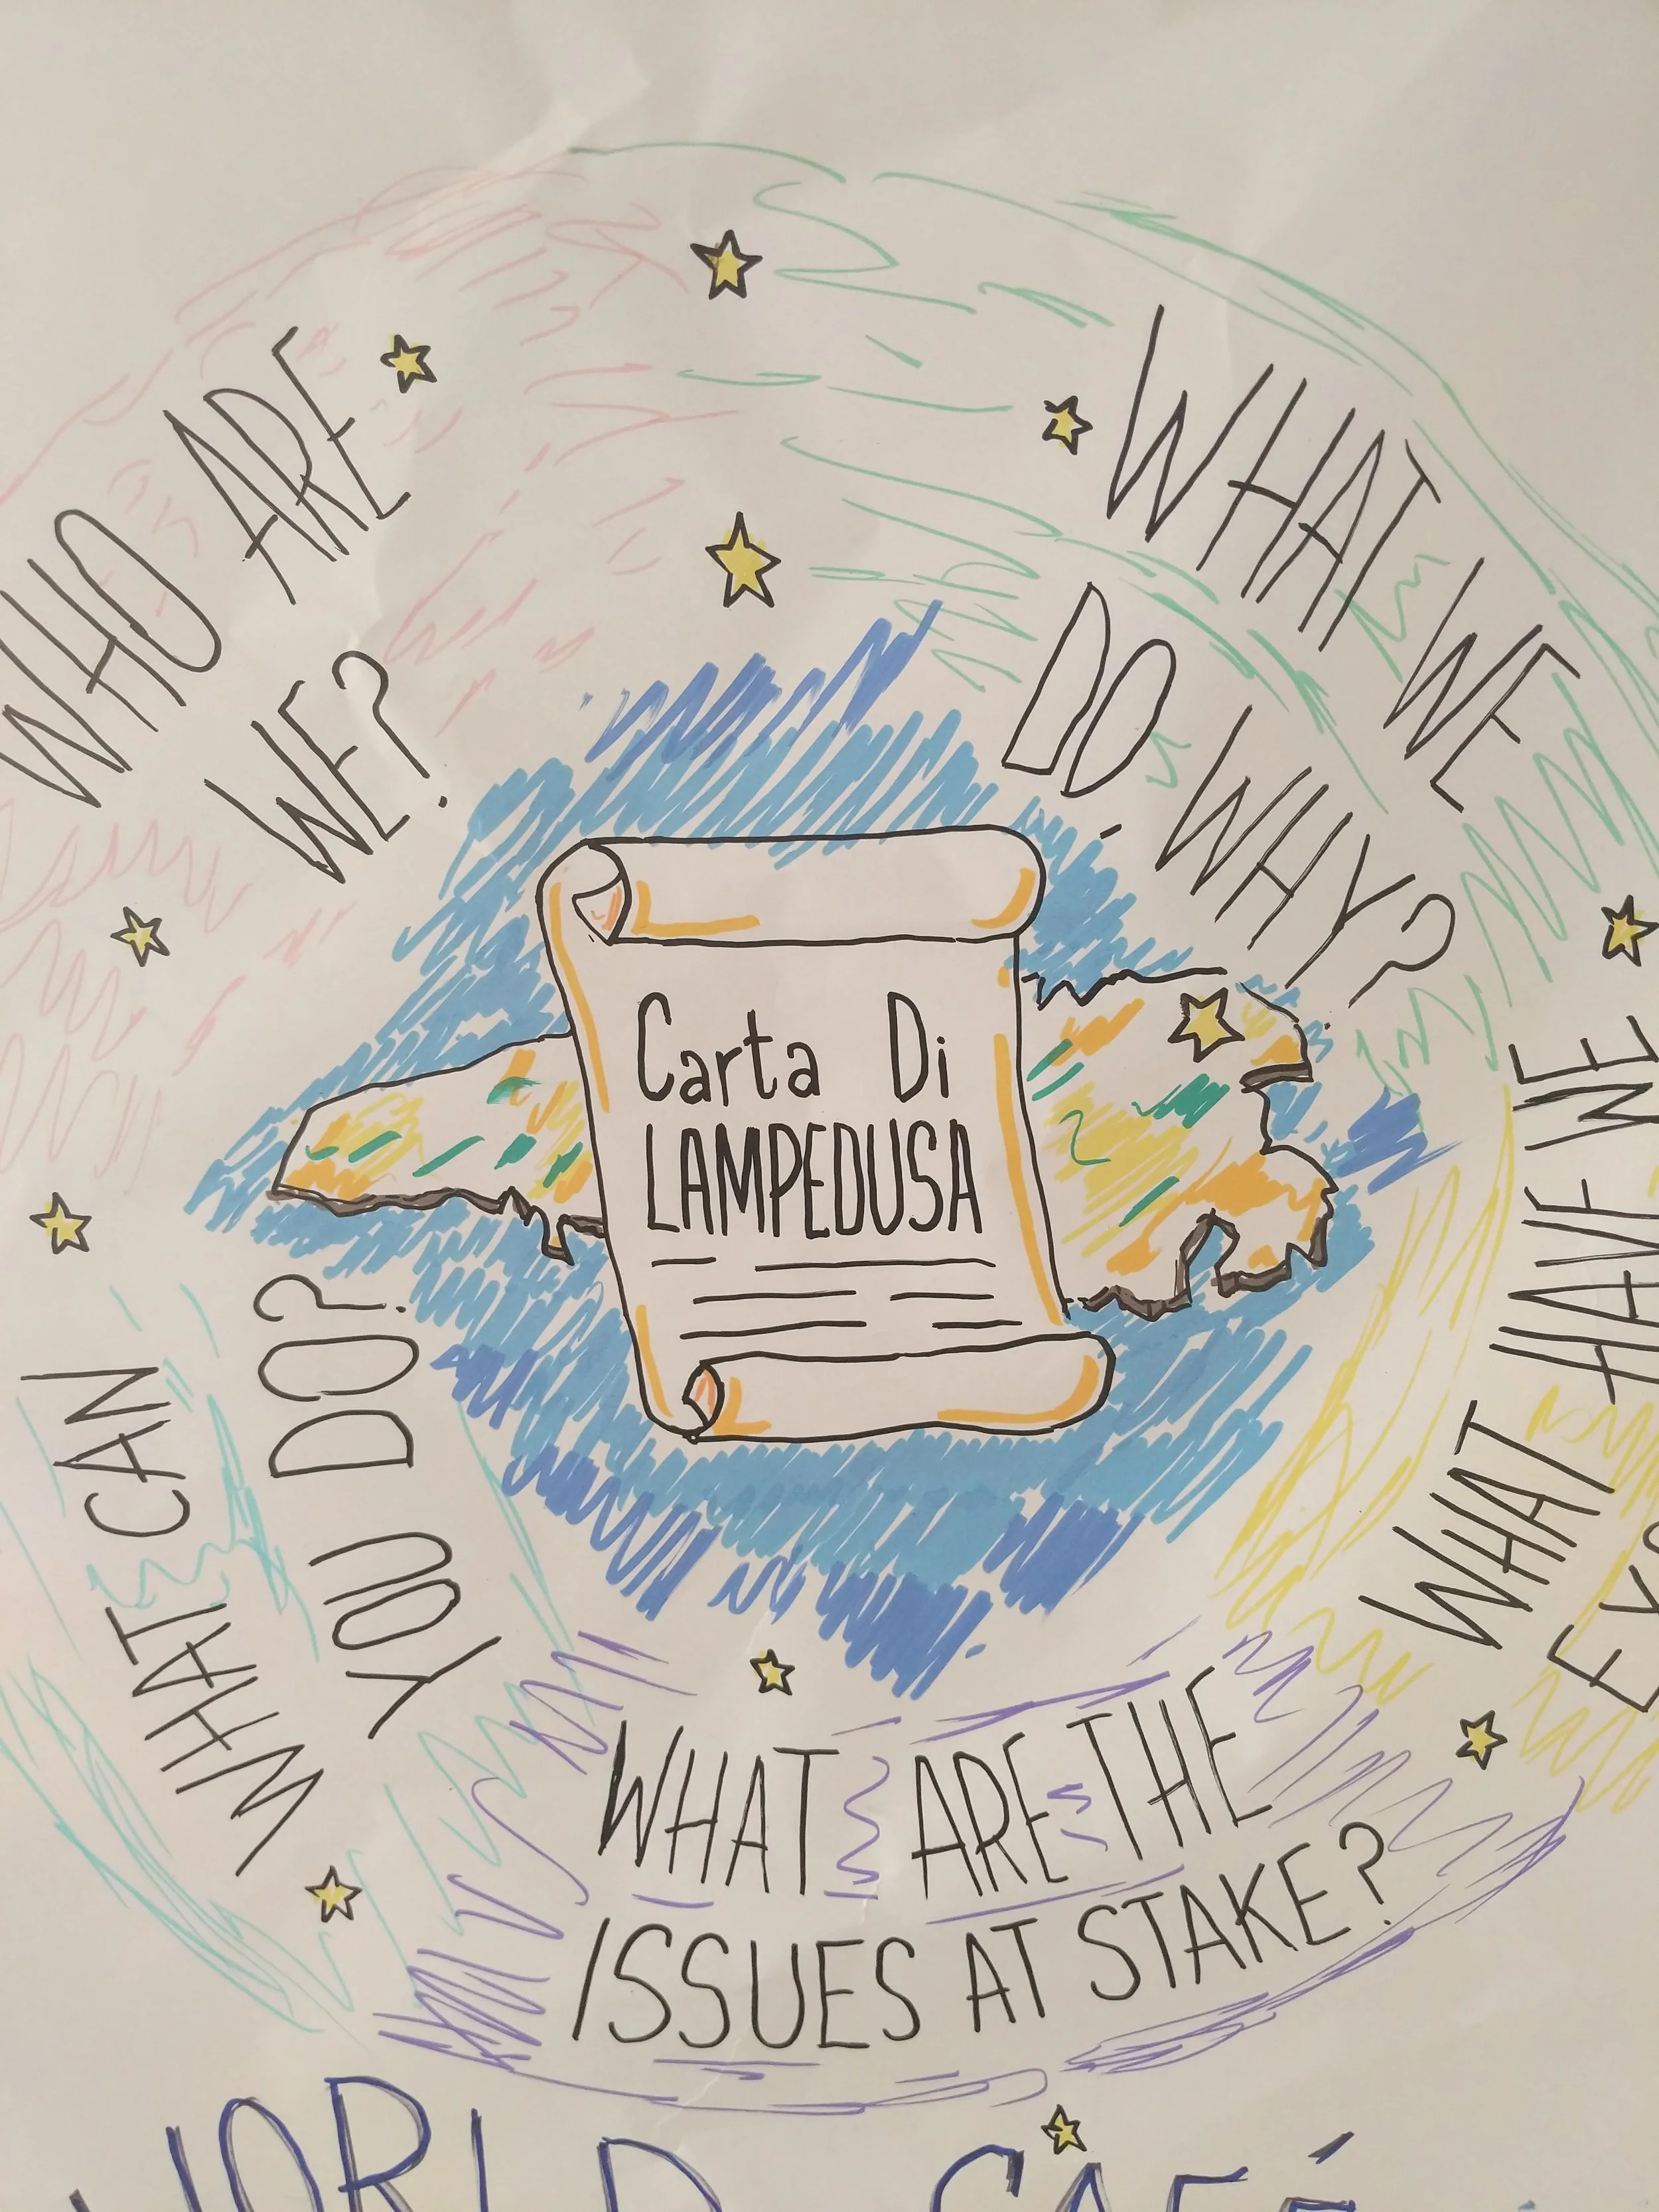 WHO ARE
WE?
WHAT WE
DO WHY?
Carta Di
LAMPEDUSA
WHAT HAVE WE
WHAT CAN
YOU DO?
WHAT ARE THE
ISSUES AT STAKE?
WORLD CAFÉ